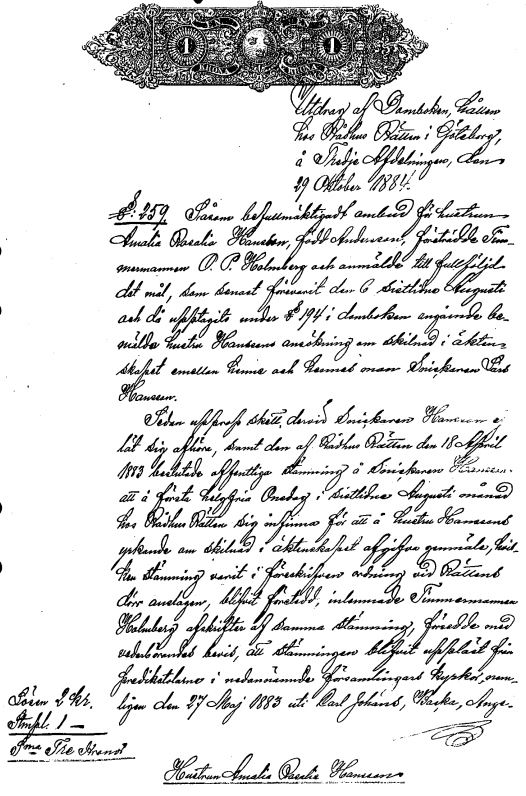 1 1
Utdrag af Domboken, hållen
hos Rådhus Rätten i Göteborg,
å Tredje Afdelningen, den
29 Oktober 1884.
§: 259. Såsom befullmäktigadt ombud för hustrun
Amalia Rosalia Hansson, född Anderson, förstådde Tim-
mermannen O. P. Holmberg och anmälde till fullföljd
det mål, som senast förevarit den 6 sistlidne Augusti
och då upptagits under § 194 i domboken angående be-
mälde hustru Hanssons ansökning om skilnad i äkten-
skapet emellan henne och hennes man Snickaren Lars
Hansson.
Sedan upprop skett, dervid Snickaren Hansson ej
lät sig afhöra, samt den af Rådhus Rätten den 18 April
1883 beslutade offentliga stämning å Snickaren Hansson
att å första helgfria Onsdag i sistlidne Augusti månad
hos Rådhus Rätten sig infinna för att å hustru Hanssons
yrkande om skilnad i äktenskapet afgifva genmäle, hvil-
ken stämning varit i föreskrifven ordning vid Rättens
dörr anslagen, blifvit företedd, inlemnade Timmermannen
Holmberg afskrifter af samma stämning, försedde med
vederbörandes bevis, att stämningen blifvit uppläst från
predikstolarne i nedannämnde församlingars kyrkor, nem-
ligen den 27 Maj 1883 uti Carl Johans, Backa, Ange-
Lösen 2 kr.
Stmpl. 1 —
Sma Tre Kronor
Hustrun Amalia Rosalia Hansson